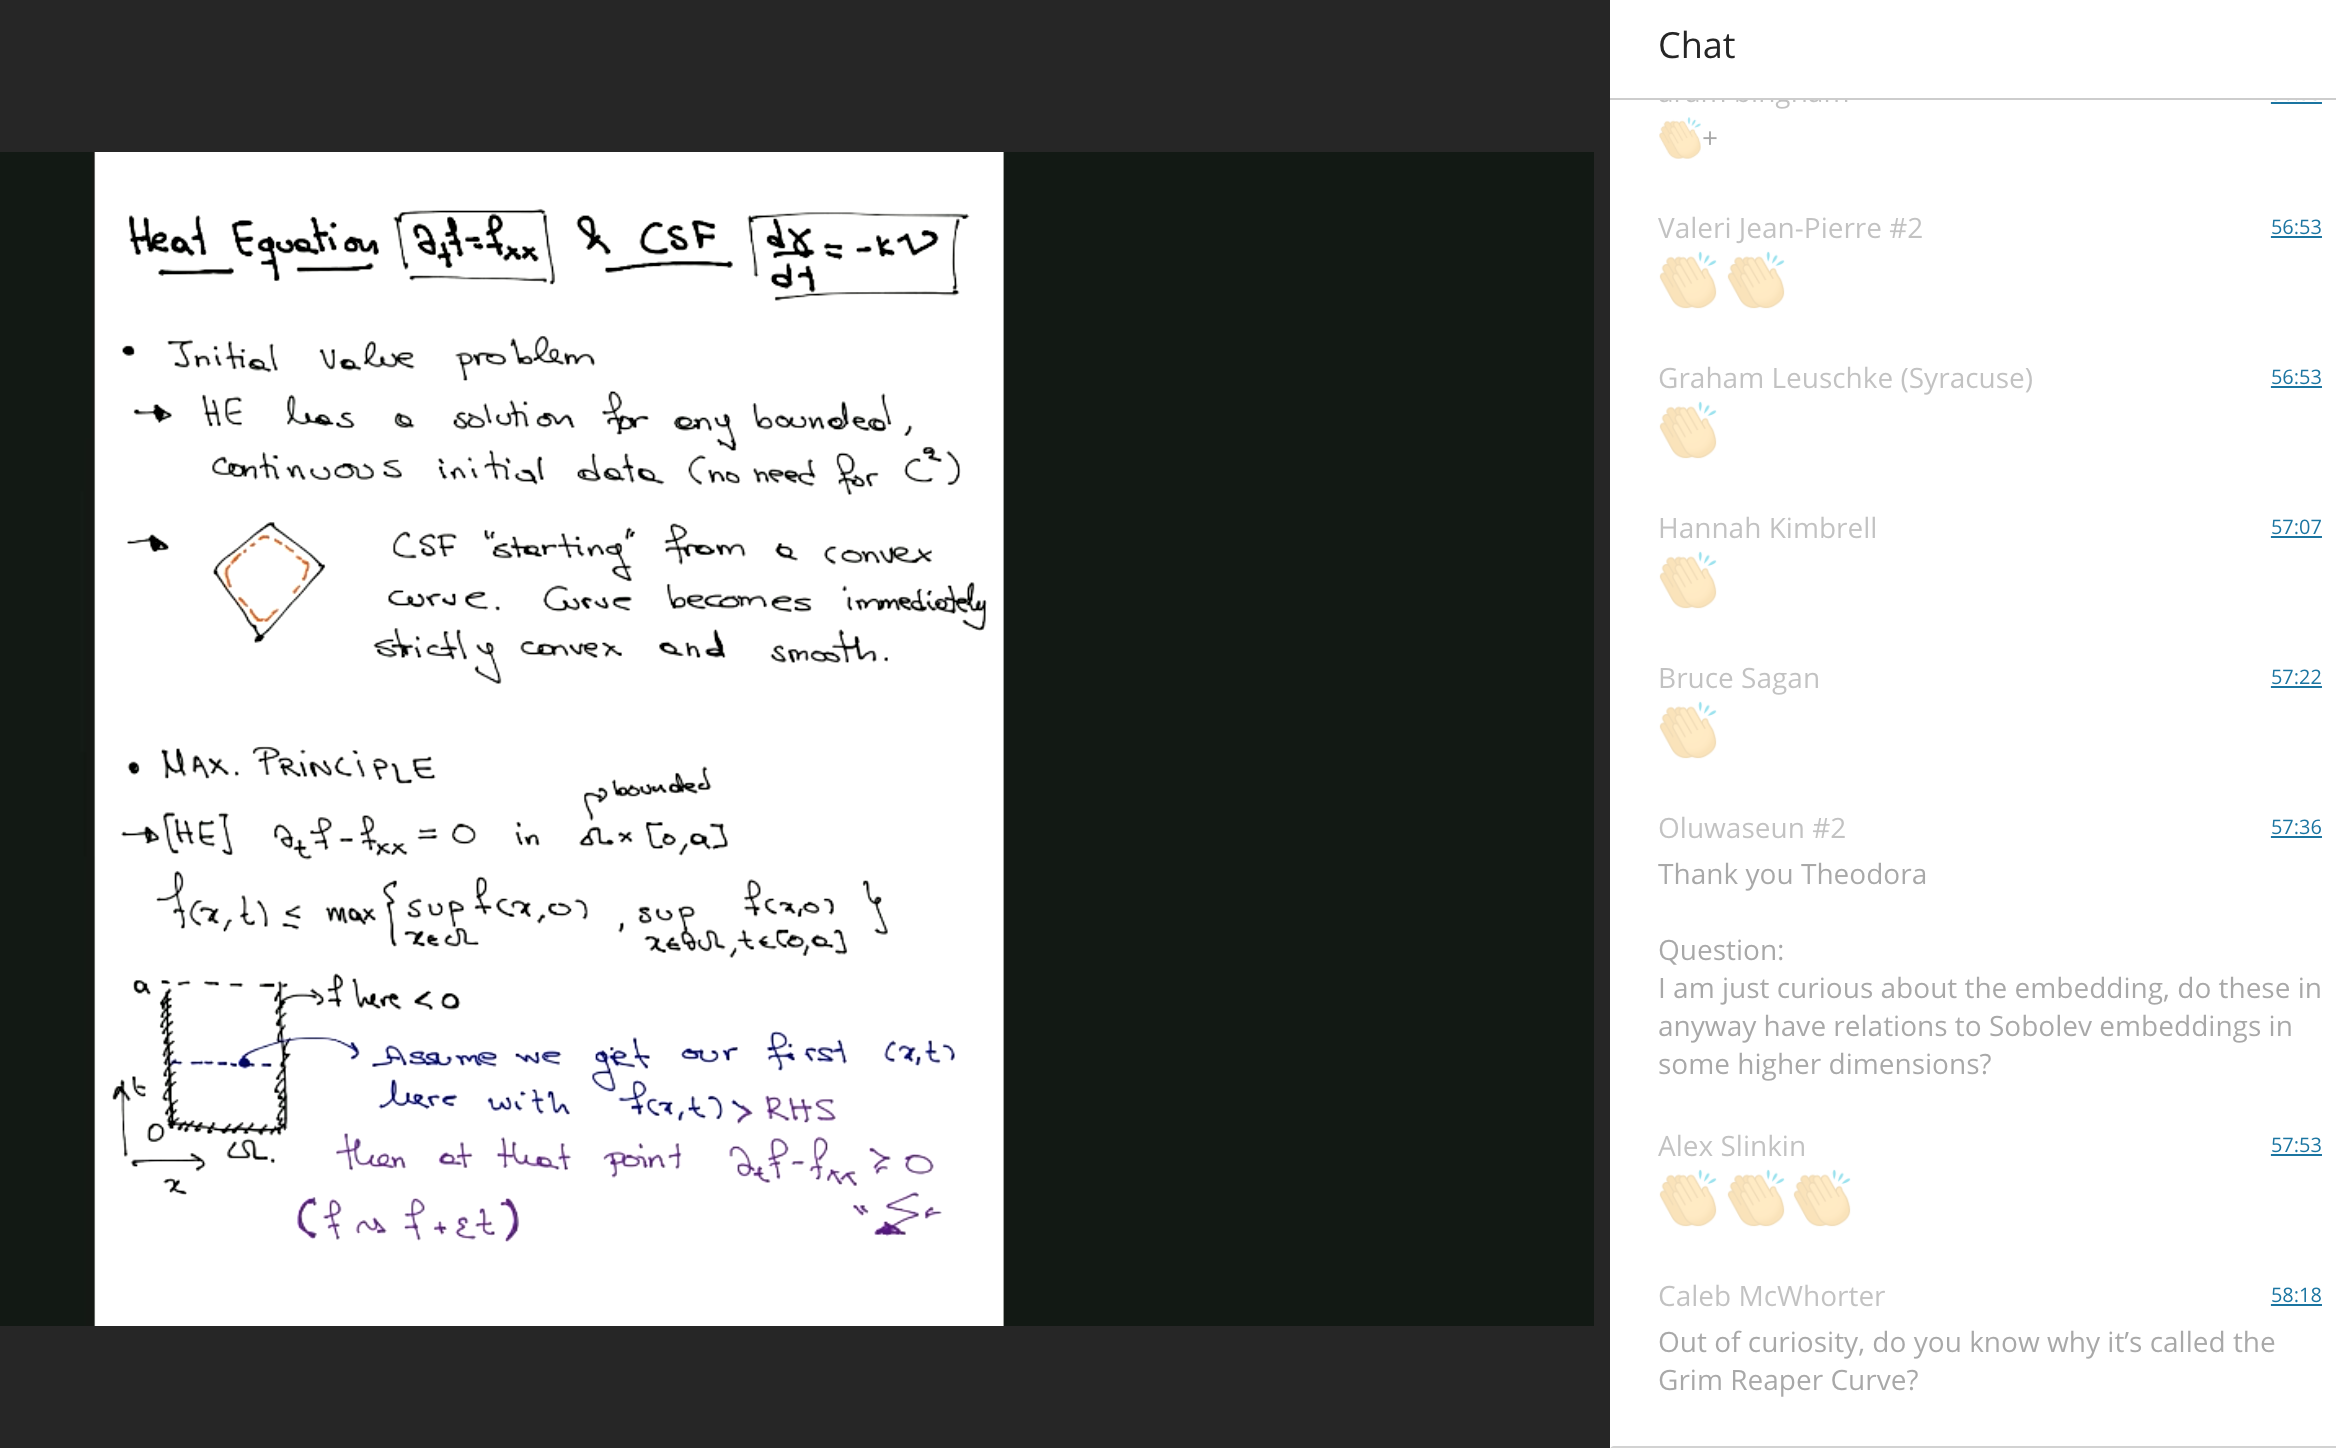 Heat Equation ∂tf=fxx & CSF dγ/dt = -κν
• Initial value problem
→ HE has a solution for any bounded,
continuous initial data (no need for C²)
→ CSF "starting" from a convex
curve. Curve becomes immediately
strictly convex and smooth.
• MAX. PRINCIPLE
bounded
→[HE] ∂tf-fxx = 0 in Ω×[0,a]
f(x,t) ≤ max{sup f(x,0), sup f(x,0)}
x∈Ω x∈∂Ω,t∈[0,a]
a
f here <0
Assume we get our first (x,t)
here with f(x,t) > RHS
t
0
Ω.
then at that point ∂tf-fxx ≥ 0
x
(f ~> f+εt)
Chat
👏+
Valeri Jean-Pierre #2 56:53
👏👏
Graham Leuschke (Syracuse) 56:53
👏
Hannah Kimbrell 57:07
👏
Bruce Sagan 57:22
👏
Oluwaseun #2 57:36
Thank you Theodora
Question:
I am just curious about the embedding, do these in
anyway have relations to Sobolev embeddings in
some higher dimensions?
Alex Slinkin 57:53
👏👏👏
Caleb McWhorter 58:18
Out of curiosity, do you know why it's called the
Grim Reaper Curve?